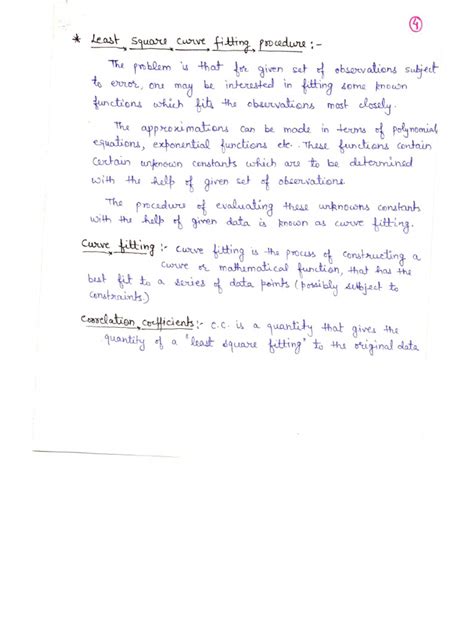 4
* Least Square curve fitting procedure:-
The problem is that for given set of observations subject
to error, one may be interested in fitting some known
functions which fits the observations most closely.
The approximations can be made in terms of polynomial
equations, exponential functions etc. These functions contain
certain unknown constants which are to be determined
with the help of given set of observations
The procedure of evaluating these unknowns constants
with the help of given data is known as curve fitting.
Curve fitting :- curve fitting is the process of constructing a
curve or mathematical function, that has the
best fit to a series of data points (possibly subject to
constraints)
Correlation coefficients:- C.C. is a quantity that gives the
quantity of a "least square fitting" to the original data